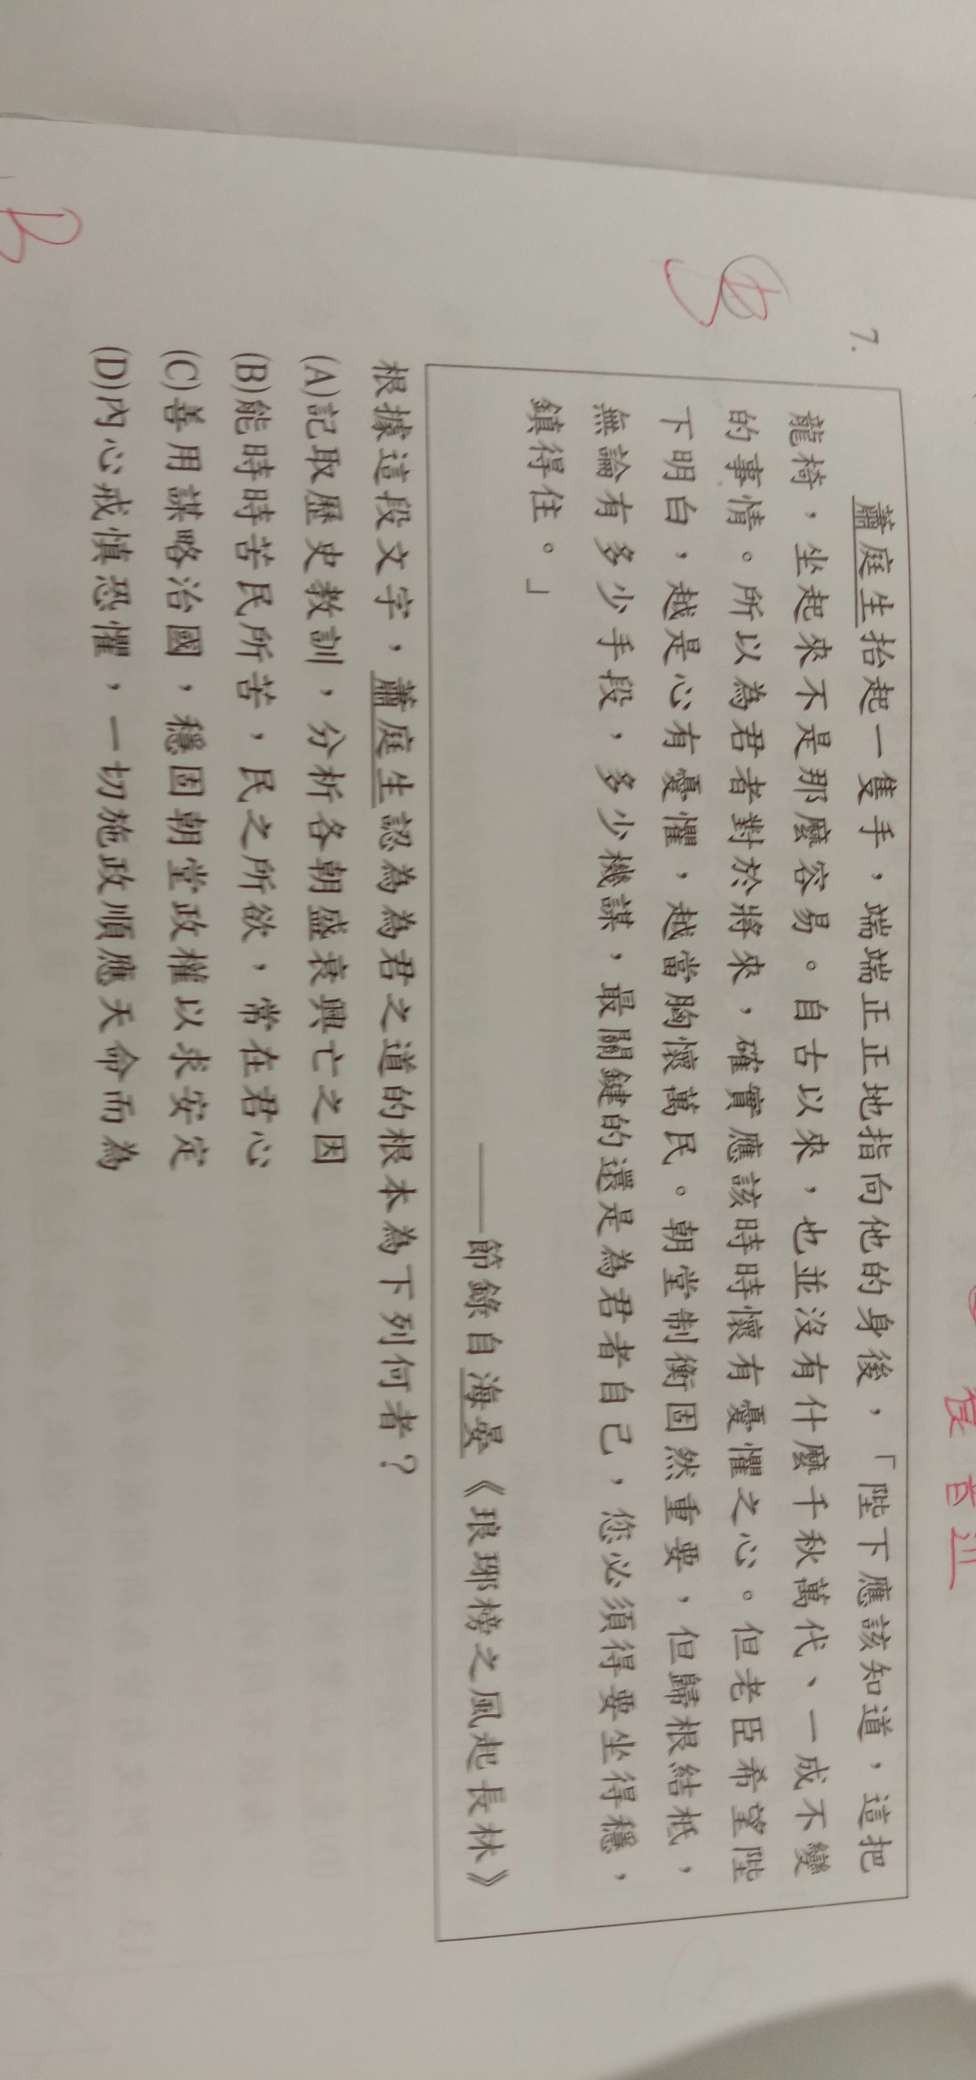 7.
蕭庭生抬起一隻手，端端正正地指向他的身後，「陛下應該知道，這把
龍椅，坐起來不是那麼容易。自古以來，也並沒有什麼千秋萬代、一成不變
的事情。所以為君者對於將來，確實應該時時懷有憂懼之心。但老臣希望陛
下明白，越是心有憂懼，越當胸懷萬民。朝堂制衡固然重要，但歸根結柢，
無論有多少手段，多少機謀，最關鍵的還是為君者自己，您必須得要坐得穩，
鎮得住。」
——節錄自海晏《琅琊榜之風起長林》
根據這段文字，蕭庭生認為為君之道的根本為下列何者？
(A)記取歷史教訓，分析各朝盛衰興亡之因
(B)能時時苦民所苦，民之所欲，常在君心
(C)善用謀略治國，穩固朝堂政權以求安定
(D)內心戒慎恐懼，一切施政順應天命而為
B